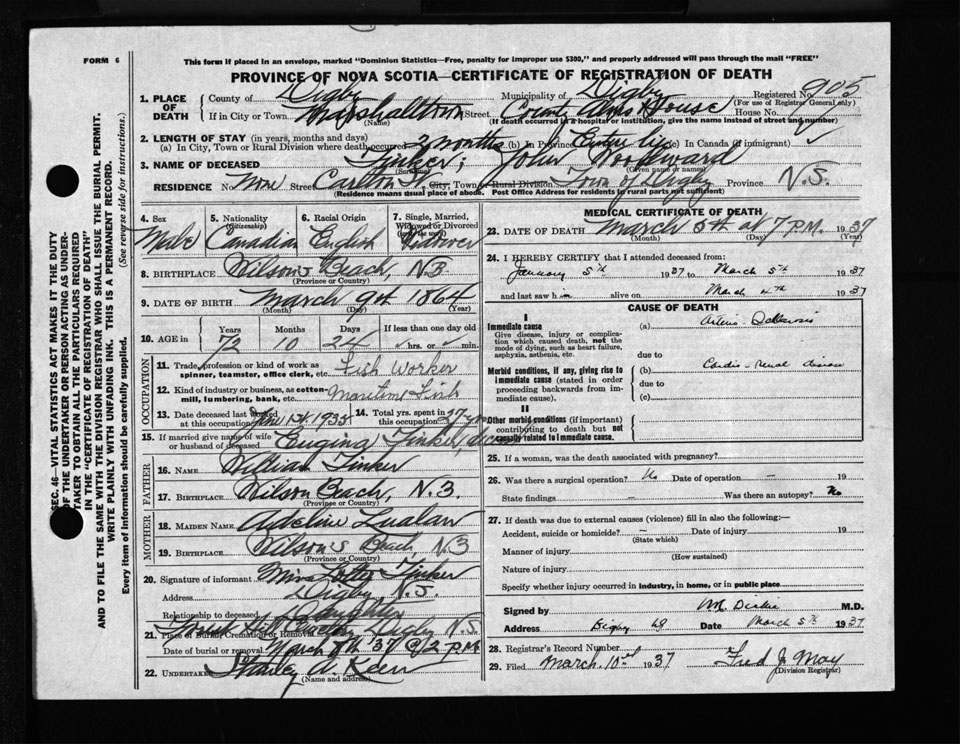 FORM 6
This form if placed in an envelope, marked "Dominion Statistics—Free, penalty for improper use $300," and properly addressed will pass through the mail "FREE"
PROVINCE OF NOVA SCOTIA—CERTIFICATE OF REGISTRATION OF DEATH
905
1. PLACE OF DEATH County of Digby Municipality of Digby Registered No.
(For use of Registrar General only)
If in City or Town Marshalltown Street County Alms House House No.
(Name) (If death occurred in hospital or institution, give the name instead of street and number)
2. LENGTH OF STAY (in years, months and days)
(a) In City, Town or Rural Division where death occurred 2 months (b) In Province Entire life (c) In Canada (if immigrant)
3. NAME OF DECEASED Tinker; John Woodward
(Surname) (Given name or names)
RESIDENCE No. None Street Carlton St. City, Town or Rural Division Town of Digby Province N.S.
(Residence means usual place of abode. Post Office Address for residents in rural parts not sufficient)
4. Sex Male
5. Nationality (Citizenship) Canadian
6. Racial Origin English
7. Single, Married, Widowed or Divorced Widower
8. BIRTHPLACE Wilson's Beach, N.B.
(Province or Country)
9. DATE OF BIRTH March 9th 1864
(Month) (Day) (Year)
10. AGE in Years Months Days If less than one day old
72 10 24 hrs. or min.
OCCUPATION
11. Trade, profession or kind of work as spinner, teamster, office clerk, etc. Fish Worker
12. Kind of industry or business, as cotton-mill, lumbering, bank, etc. Maritime Fish
13. Date deceased last worked at this occupation June 1st 1935 14. Total yrs. spent in this occupation 27 yrs
15. If married give name of wife or husband of deceased Eugina Tinker,
FATHER
16. NAME William Tinker
17. BIRTHPLACE Wilson Beach, N.B.
(Province or Country)
MOTHER
18. MAIDEN NAME Adeline
19. BIRTHPLACE Wilson's Beach, N.B
(Province or Country)
20. Signature of informant Tinker
Address Digby N.S.
Relationship to deceased Daughter
21. Place of Burial, Cremation or Removal Digby N.S.
Date of burial or removal March 8th 37 @ 2 P.M.
22. UNDERTAKER Stanley A. Keen
(Name and address)
MEDICAL CERTIFICATE OF DEATH
23. DATE OF DEATH March 5th at 7 P.M. 1937
(Month) (Day) (Year)
24. I HEREBY CERTIFY that I attended deceased from:
January 5th 1937 to March 5th 1937
and last saw him alive on March 4th 1937
CAUSE OF DEATH
I
Immediate cause (a) Arterio-
Give disease, injury or complication which caused death, not the mode of dying, such as heart failure, asphyxia, asthenia, etc.
due to
Morbid conditions, if any, giving rise to immediate cause (stated in order proceeding backwards from immediate cause). (b) Cardio-Renal disease
due to
(c)
II
Other morbid conditions (if important) contributing to death but not causally related to immediate cause.
25. If a woman, was the death associated with pregnancy?
26. Was there a surgical operation? No Date of operation — 19
State findings — Was there an autopsy? No
27. If death was due to external causes (violence) fill in also the following:—
Accident, suicide or homicide? — Date of injury 19
(State which)
Manner of injury
(How sustained)
Nature of injury
Specify whether injury occurred in industry, in home, or in public place
Signed by Dickie M.D.
Address Digby NS Date March 5th 1937
28. Registrar's Record Number
29. Filed March 10th 1937 Fred J. May
(Division Registrar)
SEC. 46—VITAL STATISTICS ACT MAKES IT THE DUTY
OF THE UNDERTAKER OR PERSON ACTING AS UNDER-
TAKER TO OBTAIN ALL THE PARTICULARS REQUIRED
IN THE "CERTIFICATE OF REGISTRATION OF DEATH"
AND TO FILE THE SAME WITH THE DIVISION REGISTRAR WHO SHALL ISSUE THE BURIAL PERMIT.
WRITE PLAINLY WITH UNFADING INK. THIS IS A PERMANENT RECORD.
Every item of Information should be carefully supplied. (See reverse side for instructions.)